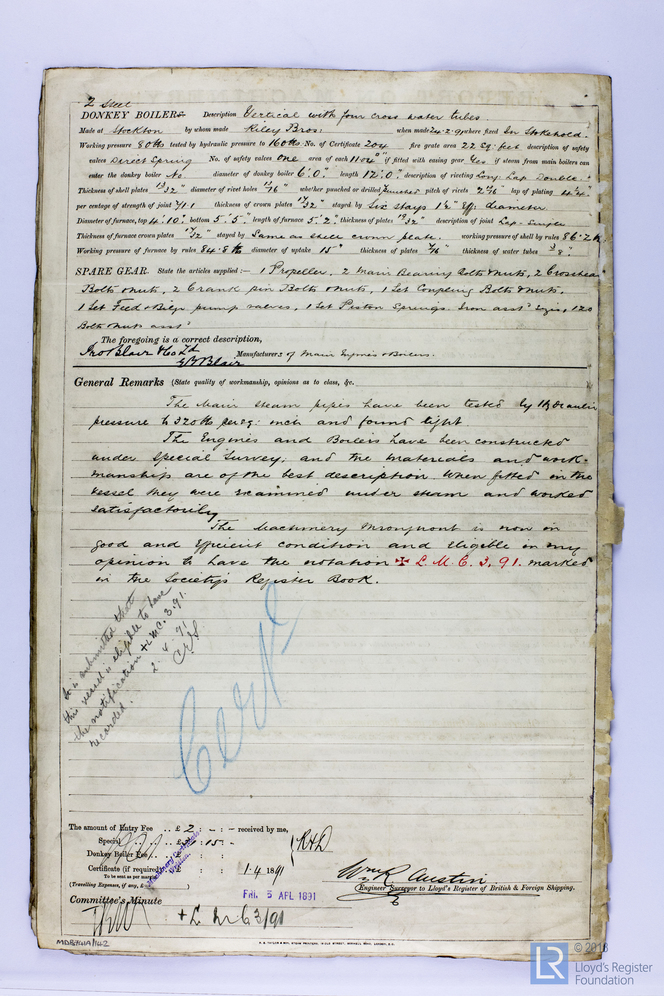 2 Steel
DONKEY BOILERS Description Vertical with four cross water tubes.
Made at Stockton by whom made Riley Bros: when made 24.2.91 where fixed In Stokehold.
Working pressure 80 lbs tested by hydraulic pressure to 160 lbs No. of Certificate 204 fire grate area 22 sq. feet description of safety
valves Direct Spring No. of safety valves One area of each 11.04" if fitted with easing gear Yes if steam from main boilers can
enter the donkey boiler No diameter of donkey boiler 6'.0" length 12'.0" description of riveting Long: Lap Double
Thickness of shell plates 13/32" diameter of rivet holes 13/16" whether punched or drilled punched pitch of rivets 2 13/16" lap of plating 4 1/4"
per centage of strength of joint 71.1 thickness of crown plates 17/32" stayed by Six Stays 1 1/2" Eff: diameter
Diameter of furnace, top 4'.10" bottom 5'.5" length of furnace 5'.2" thickness of plates 19/32" description of joint Lap Single
Thickness of furnace crown plates 17/32" stayed by Same as shell crown plate. working pressure of shell by rules 86.2 lbs
Working pressure of furnace by rules 84.8 lbs diameter of uptake 15" thickness of plates 7/16" thickness of water tubes 3/8"
SPARE GEAR. State the articles supplied:— 1 Propeller, 2 Main Bearing Bolts & Nuts, 2 Crosshead
Bolts & nuts, 2 Crank pin Bolts & Nuts, 1 Set Coupling Bolts & nuts,
1 Set Feed & Bilge pump valves, 1 Set Piston Springs. Iron asst sizes, 120
Bolts & Nuts asst
The foregoing is a correct description,
Jno Blair & Co Ld
G Blair Manufacturers of Main Engines & Boilers.
General Remarks (State quality of workmanship, opinions as to class, &c.
The Main steam pipes have been tested by Hydraulic
pressure to 320 lbs per sq: inch and found tight
The Engines and Boilers have been constructed
under special survey, and the materials and work-
manship are of the best description. When fitted in the
vessel they were examined under steam and worked
satisfactorily
The Machinery throughout is now in
good and efficient condition and eligible in my
opinion to have the notation ✠ L.M.C. 3.91. marked
in the Society's Register Book.
It is submitted that
this vessel is eligible to have
the notification + LMC. 3.91.
recorded.
2.4.91
Cert
The amount of Entry Fee .. £ 2 : - : - received by me,
Special .. £ : 15 : -
Donkey Boiler Fee .. £ : :
Certificate (if required) .. £ : : 1.4.1891
To be sent as per margin
(Travelling Expenses, if any, £ )
R&D
Wm R Austin
Engineer Surveyor to Lloyd's Register of British & Foreign Shipping.
FRI. 3 APL 1891
Committee's Minute
+ L M C 3/91
MDB/K41A/142
© 2018
LR
Lloyd's Register
Foundation